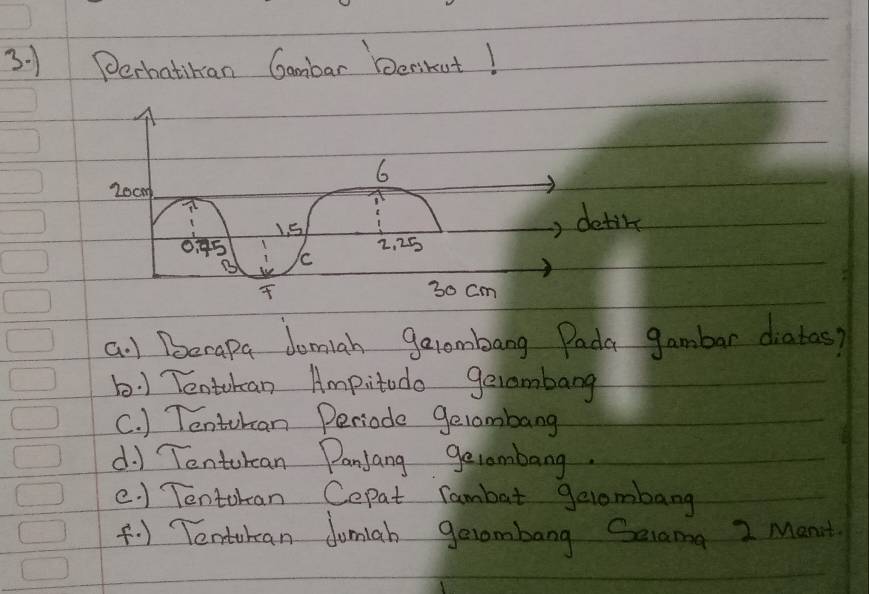 3.) Perhatikan Gambar berikut !
6
20cm
detik
1,5
0,75
2,25
B
C
F
30 cm
a.) Berapa Jumlah gelombang Pada gambar diatas?
b.) Tentukan Ampitudo gelombang
C.) Tentukan Periode gelombang
d.) Tentukan Panjang gelombang.
e.) Tentukan Cepat rambat gelombang
f.) Tentukan Jumlah gelombang Selama 2 Menit.